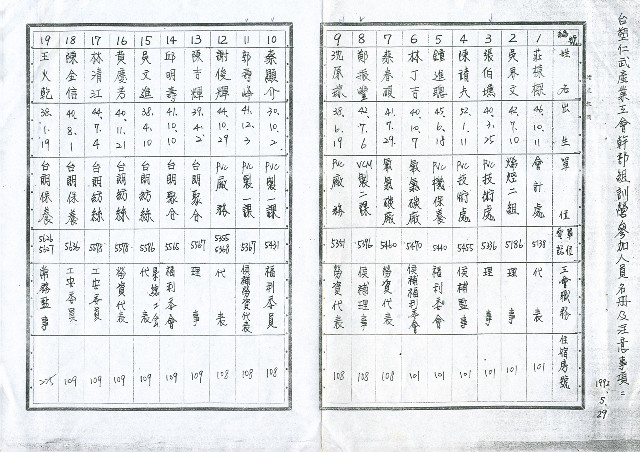 台塑仁武產業工會幹部組訓營參加人員名冊及注意事項：
1992. 5. 29
編號 姓名 出生 單位 單位電話 工會職務 住宿房號
1 46. 10. 11 會計處 5138 代表 101
2 吳界文 42. 7. 10 烯烴二組 5186 理事 101
3 張伯 40. 3. 25 PVC技術處 5336 理事 101
4 陳 夫 52. 1. 11 PVC技術處 5455 候補監事 101
5 鍾進聰 45. 6. 18 PVC機保養 5440 福利委員 101
6 林丁吉 40. 10. 7 氯氣碱廠 5470 候補福利委員 101
7 蔡春碩 41. 7. 29 氯氣碱廠 5460 勞資代表 108
8 鄭振豐 42. 7. 6 VCM製二課 5396 候補理事 108
9 沈 38. 6. 19 PVC廠務 5351 勞資代表 108
10 蔡顯介 30. 10. 2 PVC製一課 5431 福利委員 108
11 郭 峰 41. 12. 3 PVC製一課 5367 候補勞資代表 108
12 謝俊輝 44. 10. 29 PVC廠務 5355 5368 代表 108
13 陳吉輝 39. 4. 2 台朗聚合 5567 理事 109
14 邱明壽 41. 10. 10 台朗聚合 5565 福利委會 109
15 吳文進 38. 4. 10 台朗紡絲 5576 代表 109
16 黃慶芳 40. 11. 21 台朗紡絲 5578 勞資代表 109
17 林清江 44. 7. 4 台朗紡絲 5578 工安委員 109
18 陳金信 40. 8. 1 台朗保養 5636 工安委員 109
19 王火乾 38. 1. 19 台朗保養 5626 5627 常務監事